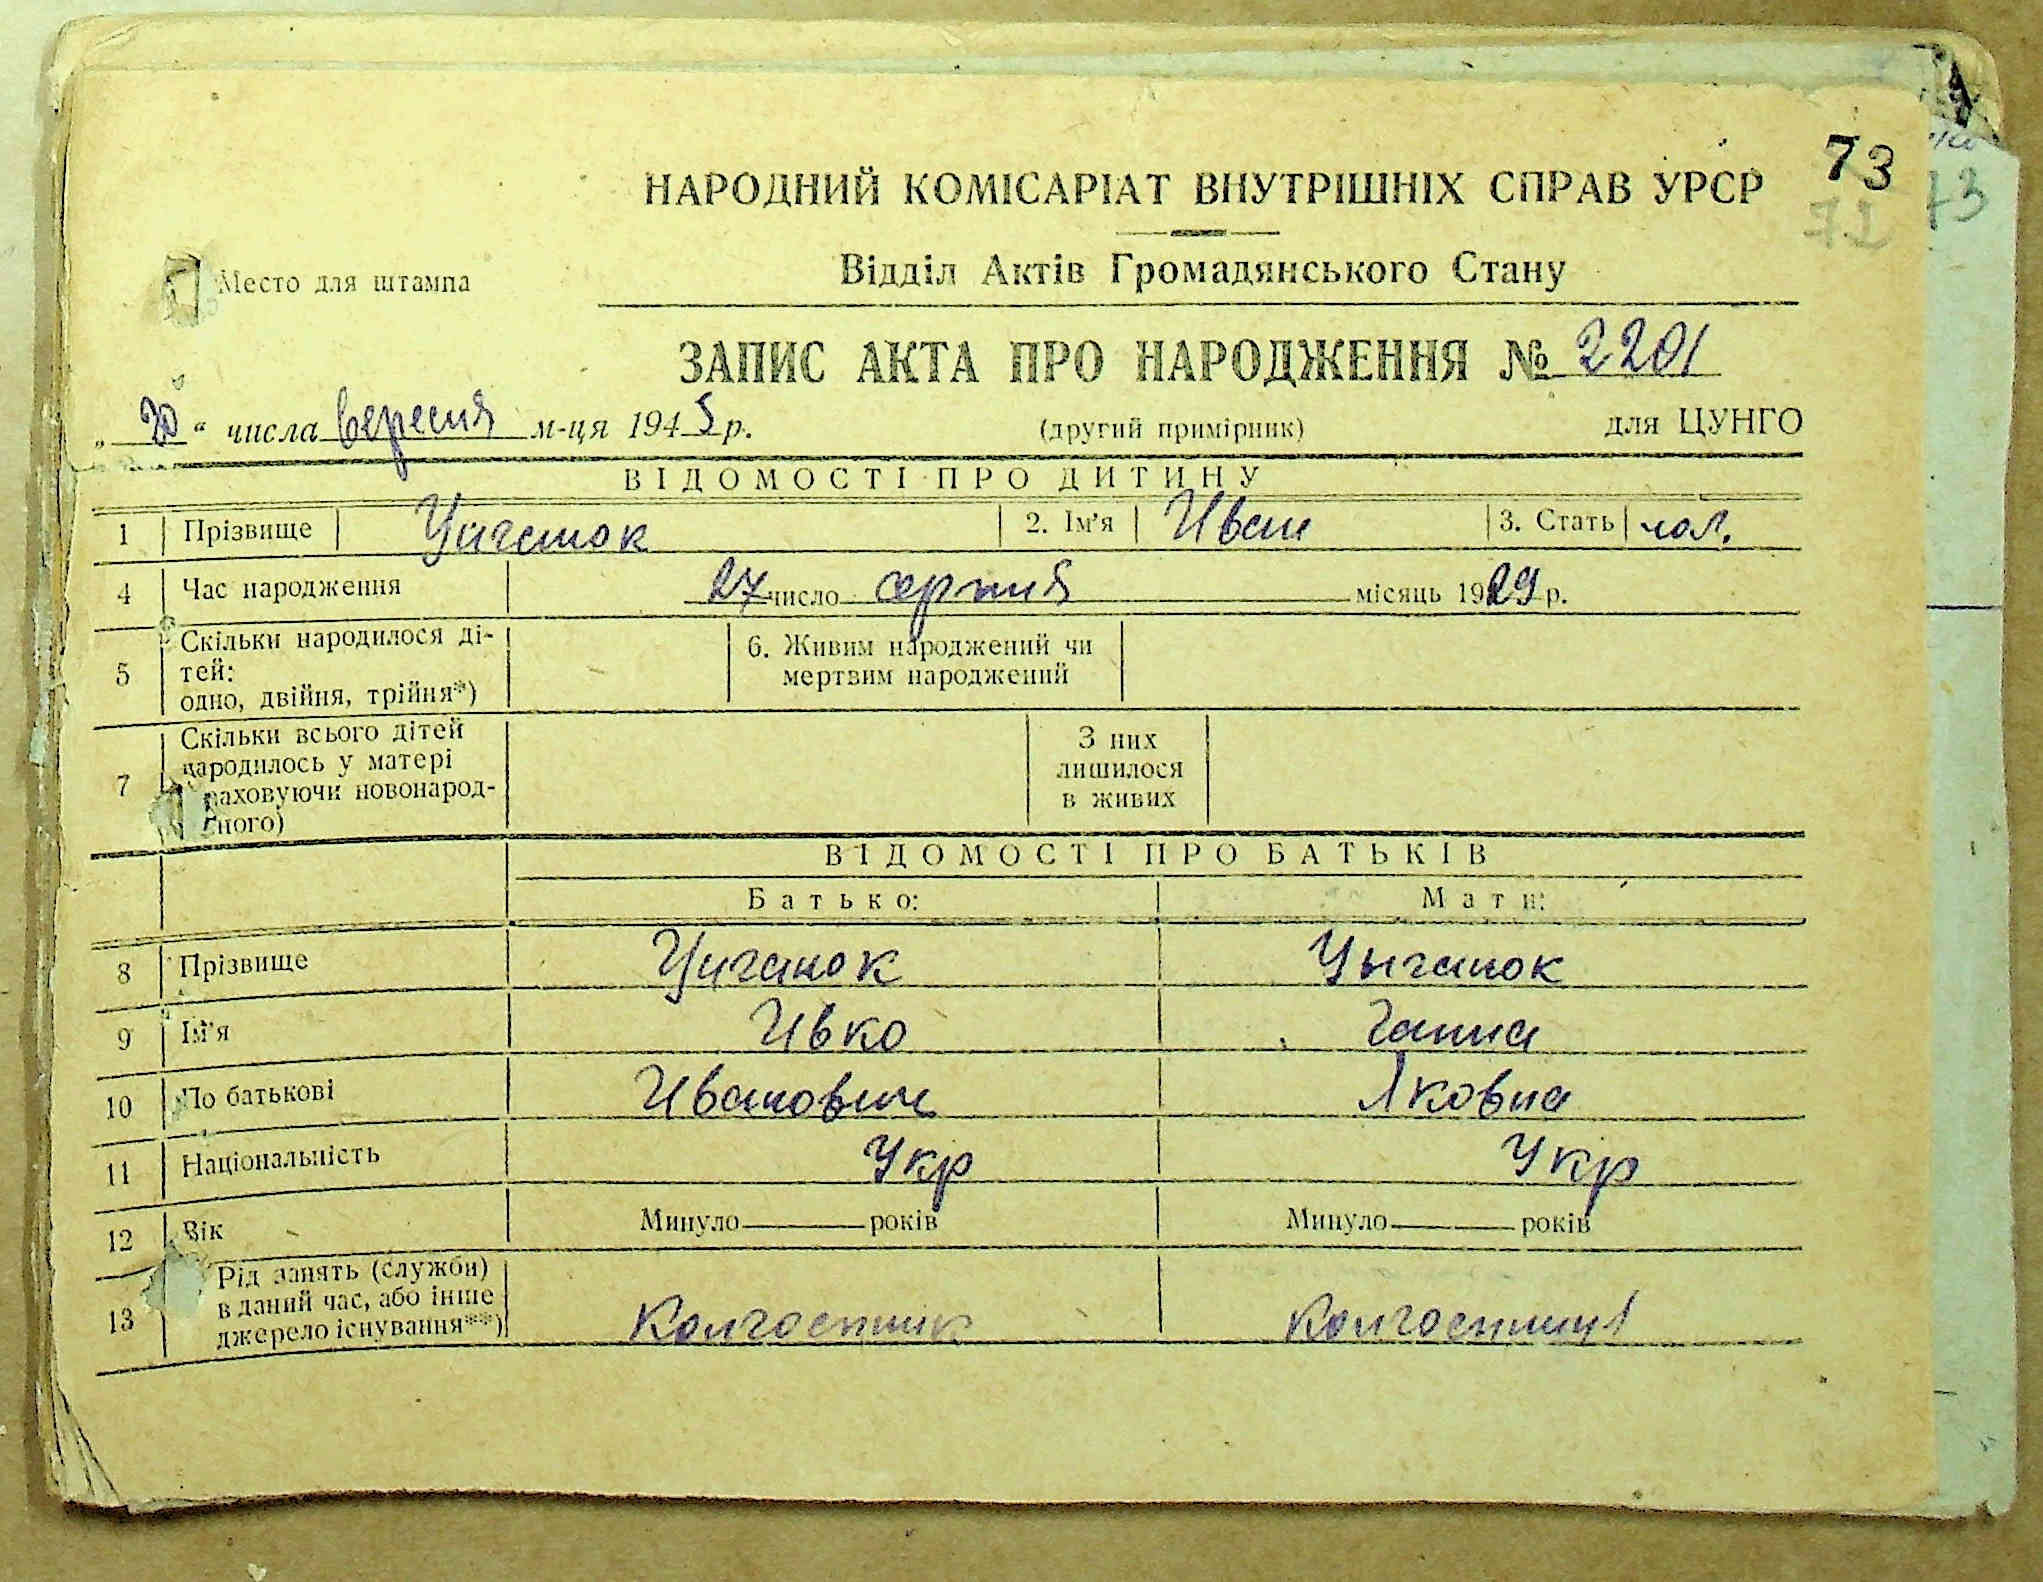 73
72
73
НАРОДНИЙ КОМІСАРІАТ ВНУТРІШНІХ СПРАВ УРСР
Відділ Актів Громадянського Стану
Место для штампа
ЗАПИС АКТА ПРО НАРОДЖЕННЯ № 2201
„ 20 “ числа вересня м-ця 1945 р. (другий примірник) для ЦУНГО
ВІДОМОСТІ ПРО ДИТИНУ
1 Прізвище Циганок 2. Ім'я Иван 3. Стать чол.
4 Час народження 27 число серпня місяць 1929 р.
5 Скільки народилося ді-
тей:
одно, двійня, трійня*)
6. Живим народжений чи
мертвим народжений
7 Скільки всього дітей
народилось у матері
раховуючи новонарод-
ного)
З них
лишилося
в живих
ВІДОМОСТІ ПРО БАТЬКІВ
Батько: Мати:
8 Прізвище Циганок Цыганок
9 Ім'я Ивко Ганна
10 По батькові Иванович Яковна
11 Національність Укр Укр
12 Вік Минуло років Минуло років
13 Рід занять (служби)
в даний час, або інше
джерело існування**)
Колгоспник Колгоспниця